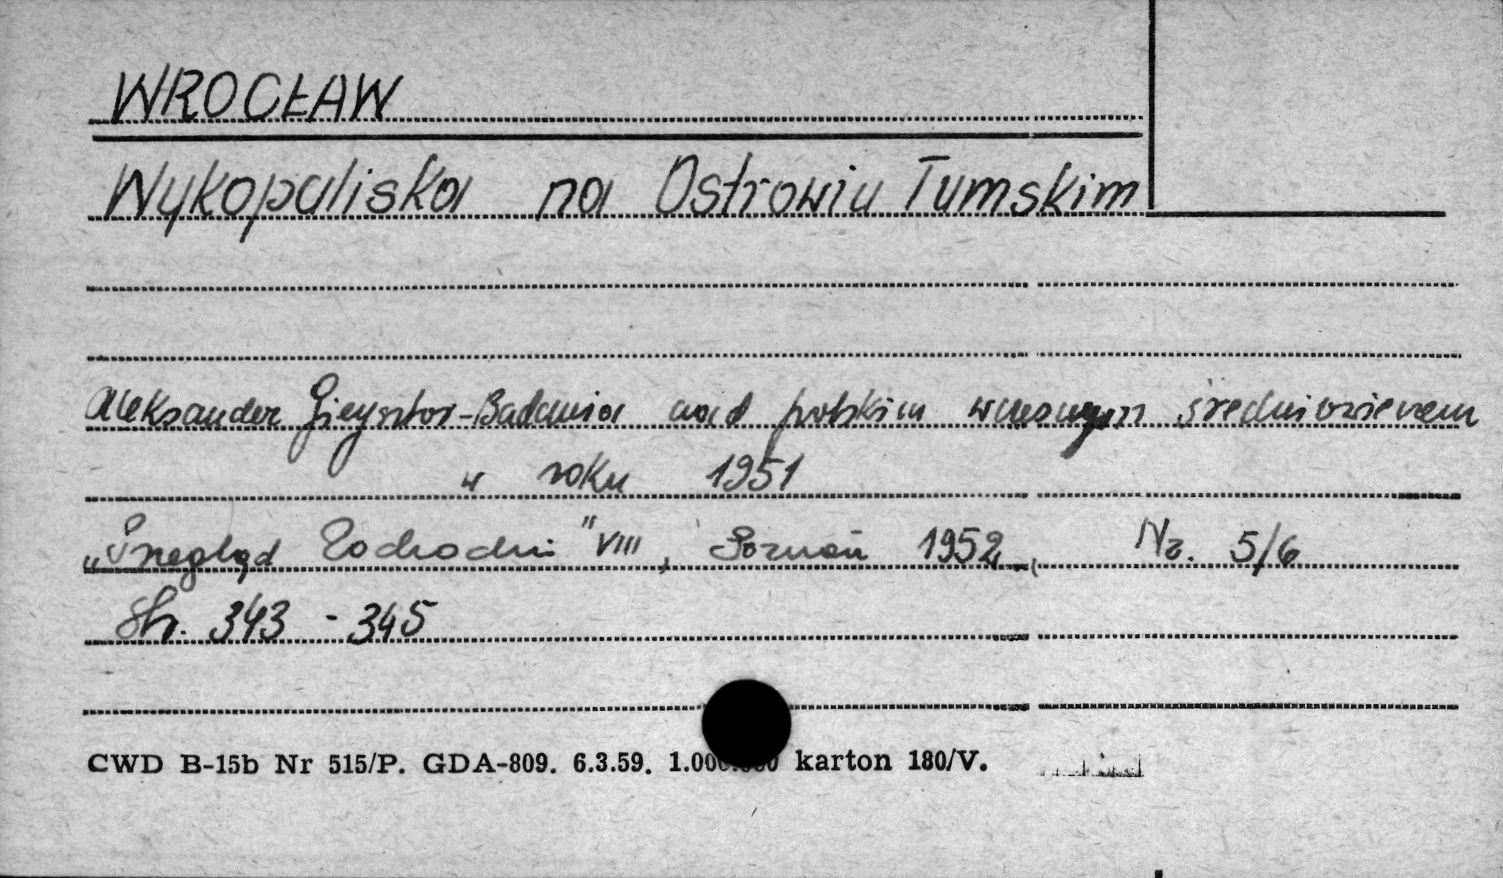 WROCŁAW
Wykopaliska na Ostrowiu Tumskim
Aleksander Gieysztor - Badania nad polskim wczesnym średniowieczem
w roku 1951
„Przegląd Zachodni" VIII, Poznań 1952, Nr. 5/6
Str. 343 - 345
CWD B-15b Nr 515/P. GDA-809. 6.3.59. 1.000.000 karton 180/V.